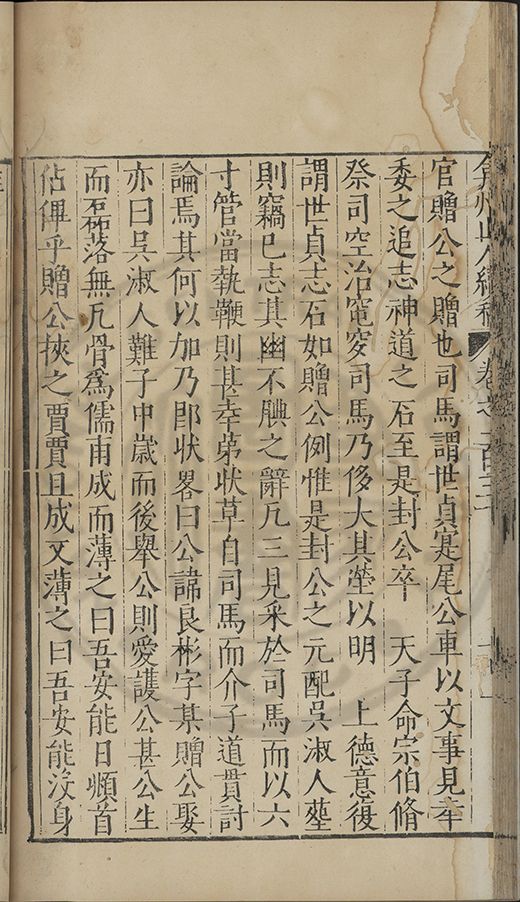 弇州山人續稿 卷之一百三十
官贈公之贈也司馬謂世貞寔尾公車以文事見幸
委之追志神道之石至是封公卒 天子命宗伯脩
祭司空治窀穸司馬乃侈大其塋以明 上德意復
謂世貞志石如贈公例惟是封公之元配吳淑人塟
則竊已志其幽不腆之辭凡三見采於司馬而以六
寸管當執鞭則甚幸第狀草自司馬而介子道貫討
論焉其何以加乃卽狀畧曰公諱良彬字某贈公娶
亦曰吳淑人難子中歲而後舉公則愛護公甚公生
而磊落無凡骨爲儒甫成而薄之曰吾安能日頫首
佔俾乎贈公挾之賈賈且成又薄之曰吾安能沒身